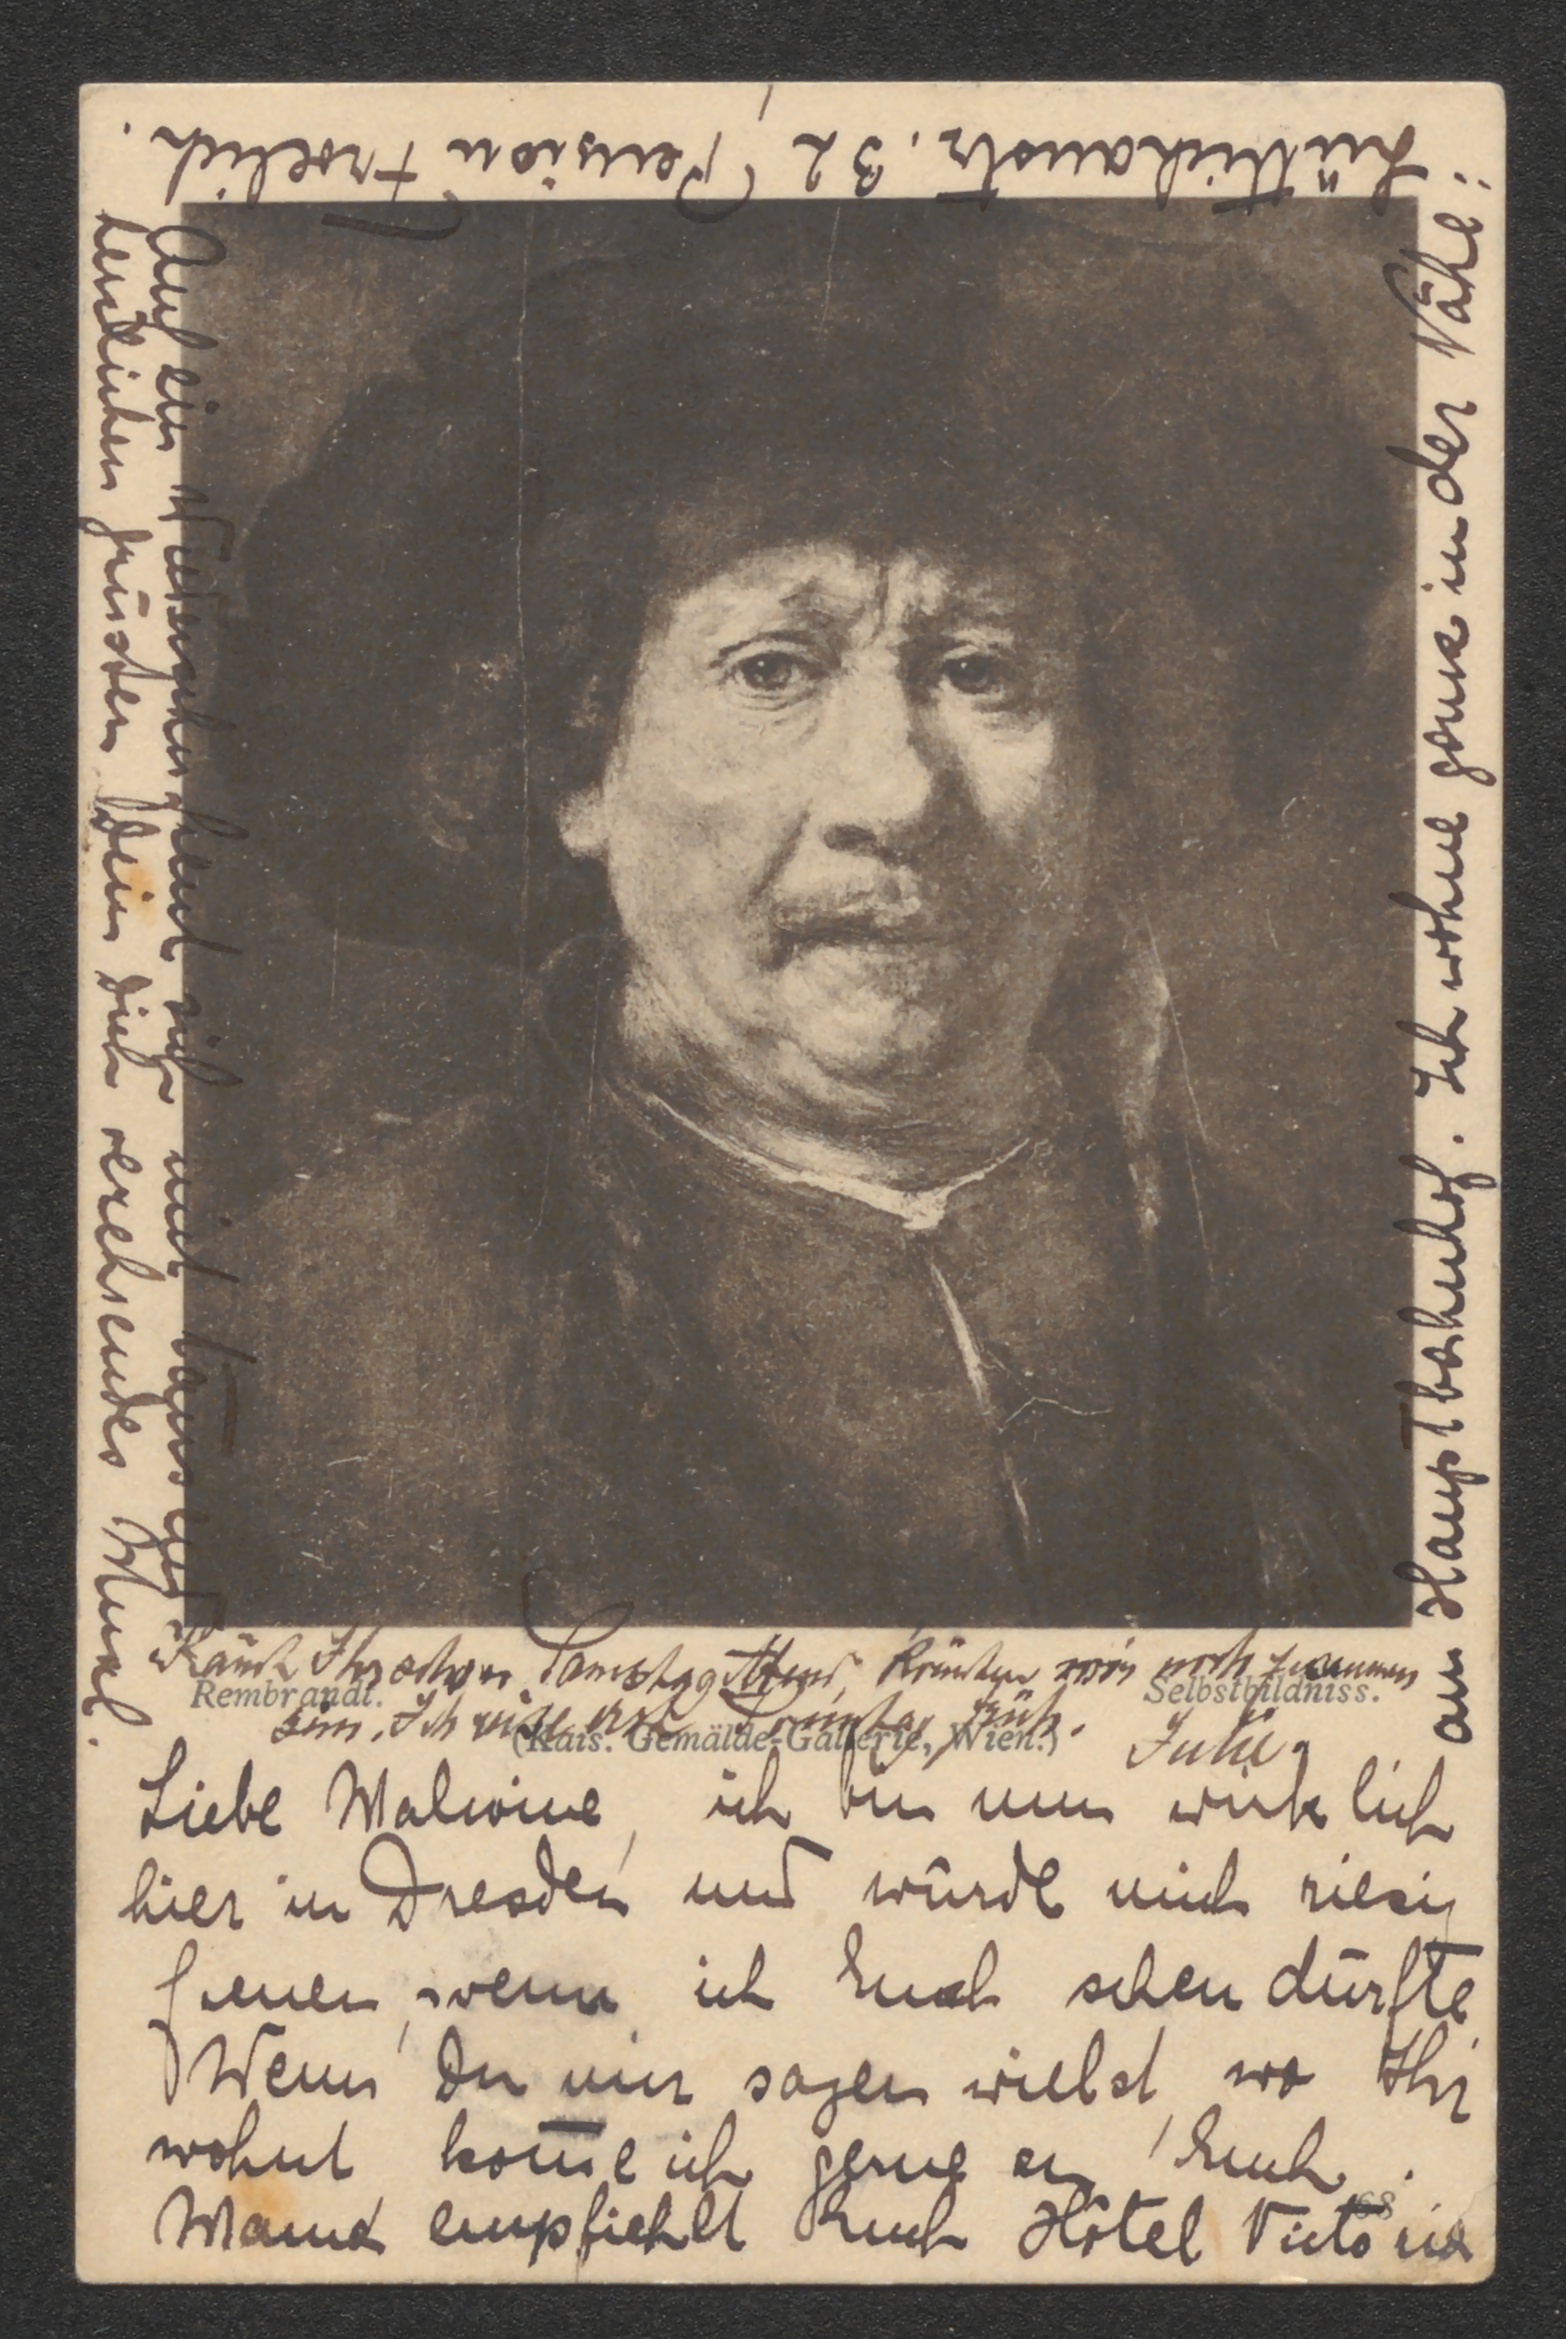 Liebe Malwine, ich bin nun wirklich
hier in Dresden und würde mich riesig
freuen, wenn ich Euch sehen dürfte.
Wenn Du mir sagen willst, wo Ihr
wohnt kom̄e ich gerne zu Euch.
Mama empfiehlt Euch Hôtel Victoria
am Hauptbahnhof. Ich wohne ganz in der Nähe:
Lüttichaustr. 32 Pension Froelich.
Auf ein Wiedersehen freut sich mit
herzlichen Grüssen Dein Dich verehrendes
Kämt Ihr schon Samstag Abend, könnten wir noch zusammen
sein. Ich reise erst früh. Julie
Rembrandt. Selbstbildniss.
(Kais. Gemälde-Gallerie, Wien.)